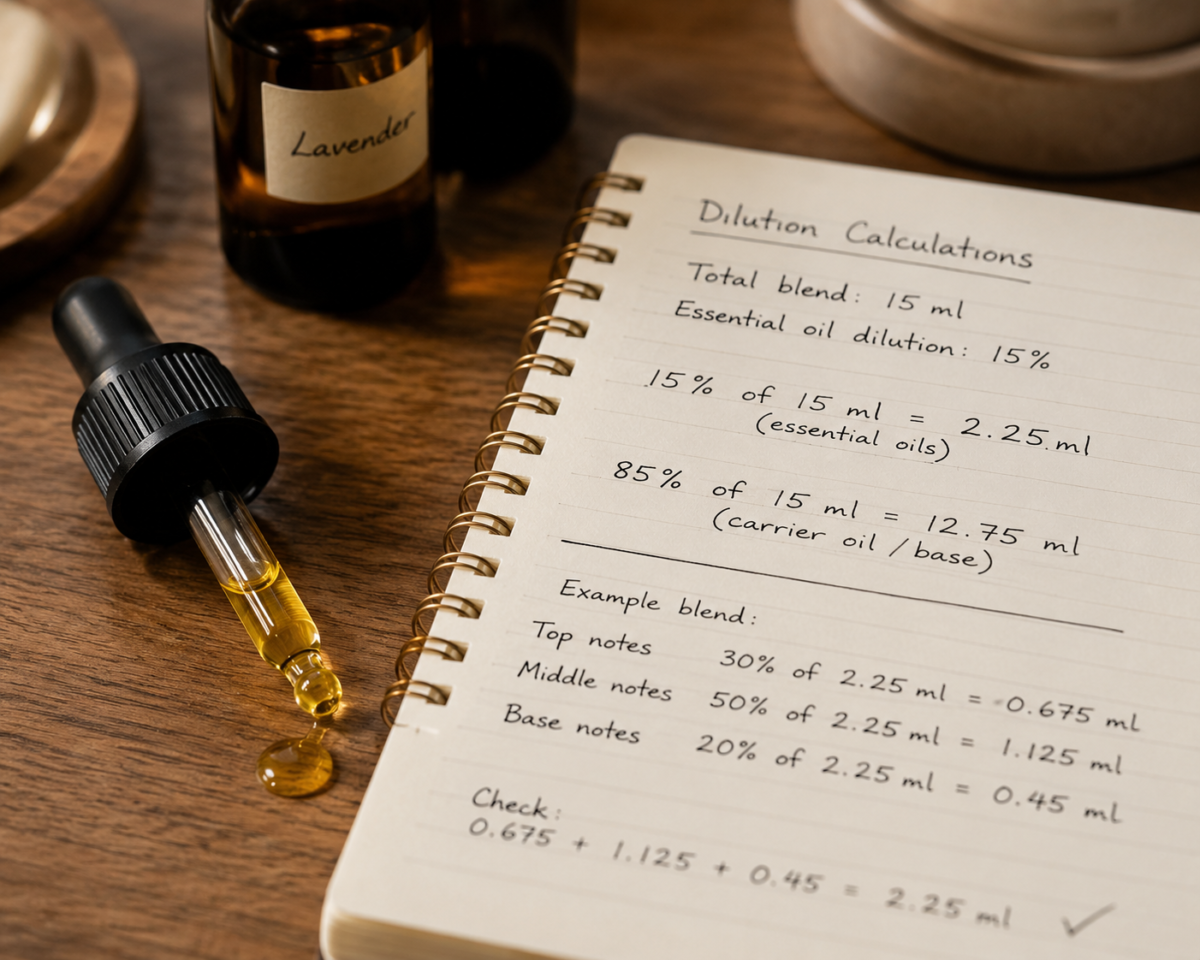 Lavender
Dilution Calculations
Total blend: 15 ml
Essential oil dilution: 15%
15% of 15 ml = 2.25 ml
(essential oils)
85% of 15 ml = 12.75 ml
(carrier oil / base)
Example blend:
Top notes 30% of 2.25 ml = 0.675 ml
Middle notes 50% of 2.25 ml = 1.125 ml
Base notes 20% of 2.25 ml = 0.45 ml
Check:
0.675 + 1.125 + 0.45 = 2.25 ml ✓